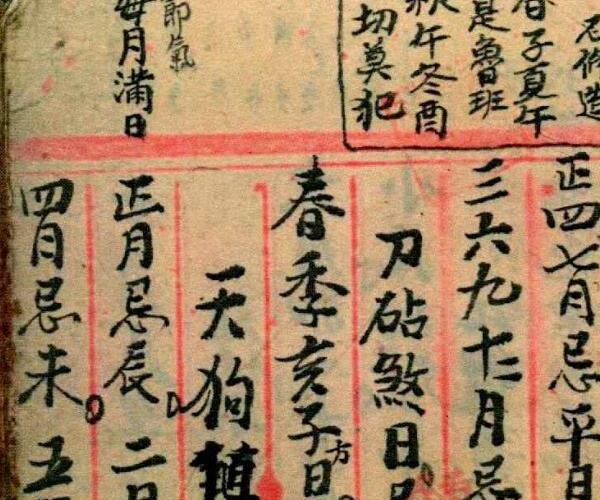 忌修造
春子夏午
是魯班
秋午冬酉
切莫犯
節氣
每月滿日
正四七月忌平日
三六九十二月忌
刀砧煞日
春季亥子日方
天狗
正月忌辰
二
四月忌未
五